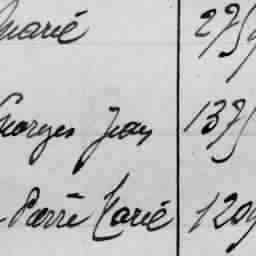 Marié 275
Georges Jean 1375
Pierre Marié 1209